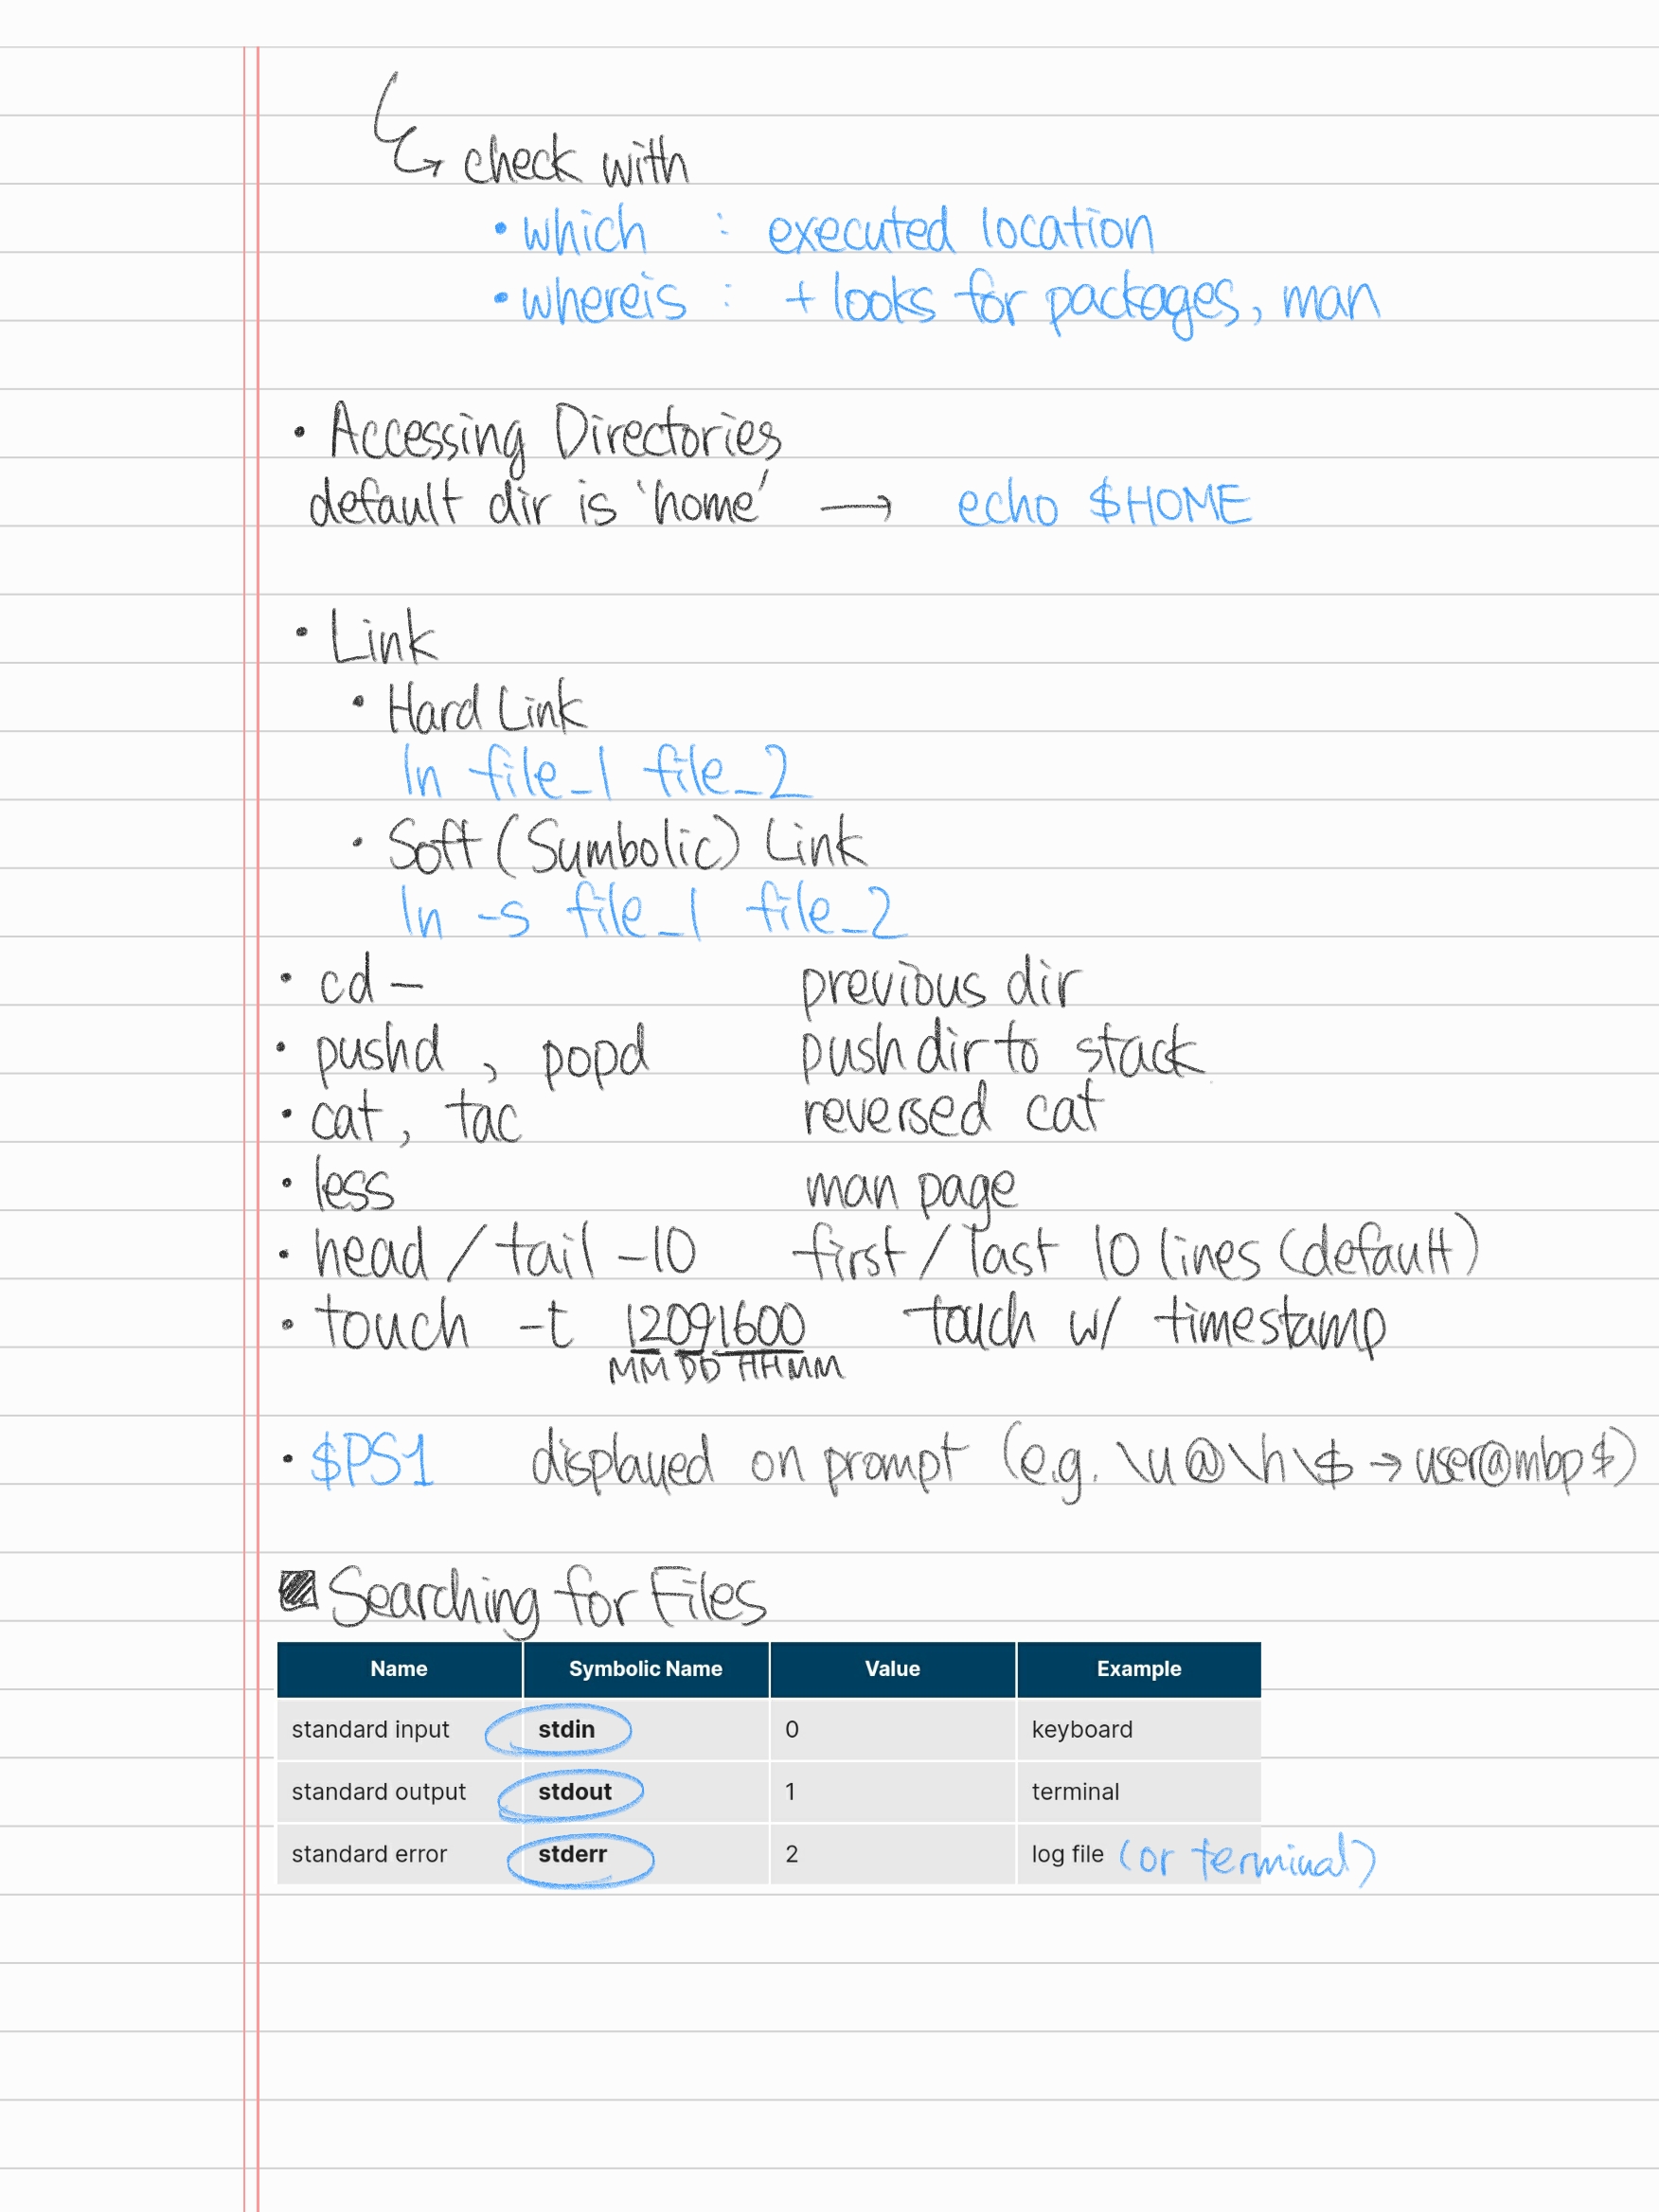 ↳ check with
• which : executed location
• whereis : + looks for packages, man
• Accessing Directories
default dir is 'home' → echo $HOME
• Link
• Hard Link
ln file_1 file_2
• Soft (Symbolic) Link
ln -s file_1 file_2
• cd - previous dir
• pushd , popd push dir to stack
• cat, tac reversed cat
• less man page
• head / tail -10 first / last 10 lines (default)
• touch -t 12091600 touch w/ timestamp
MM DD HHMM
• $PS1 displayed on prompt (e.g. \u@\h\$ → user@mbp$)
Searching for Files
Name Symbolic Name Value Example
standard input stdin 0 keyboard
standard output stdout 1 terminal
standard error stderr 2 log file (or terminal)